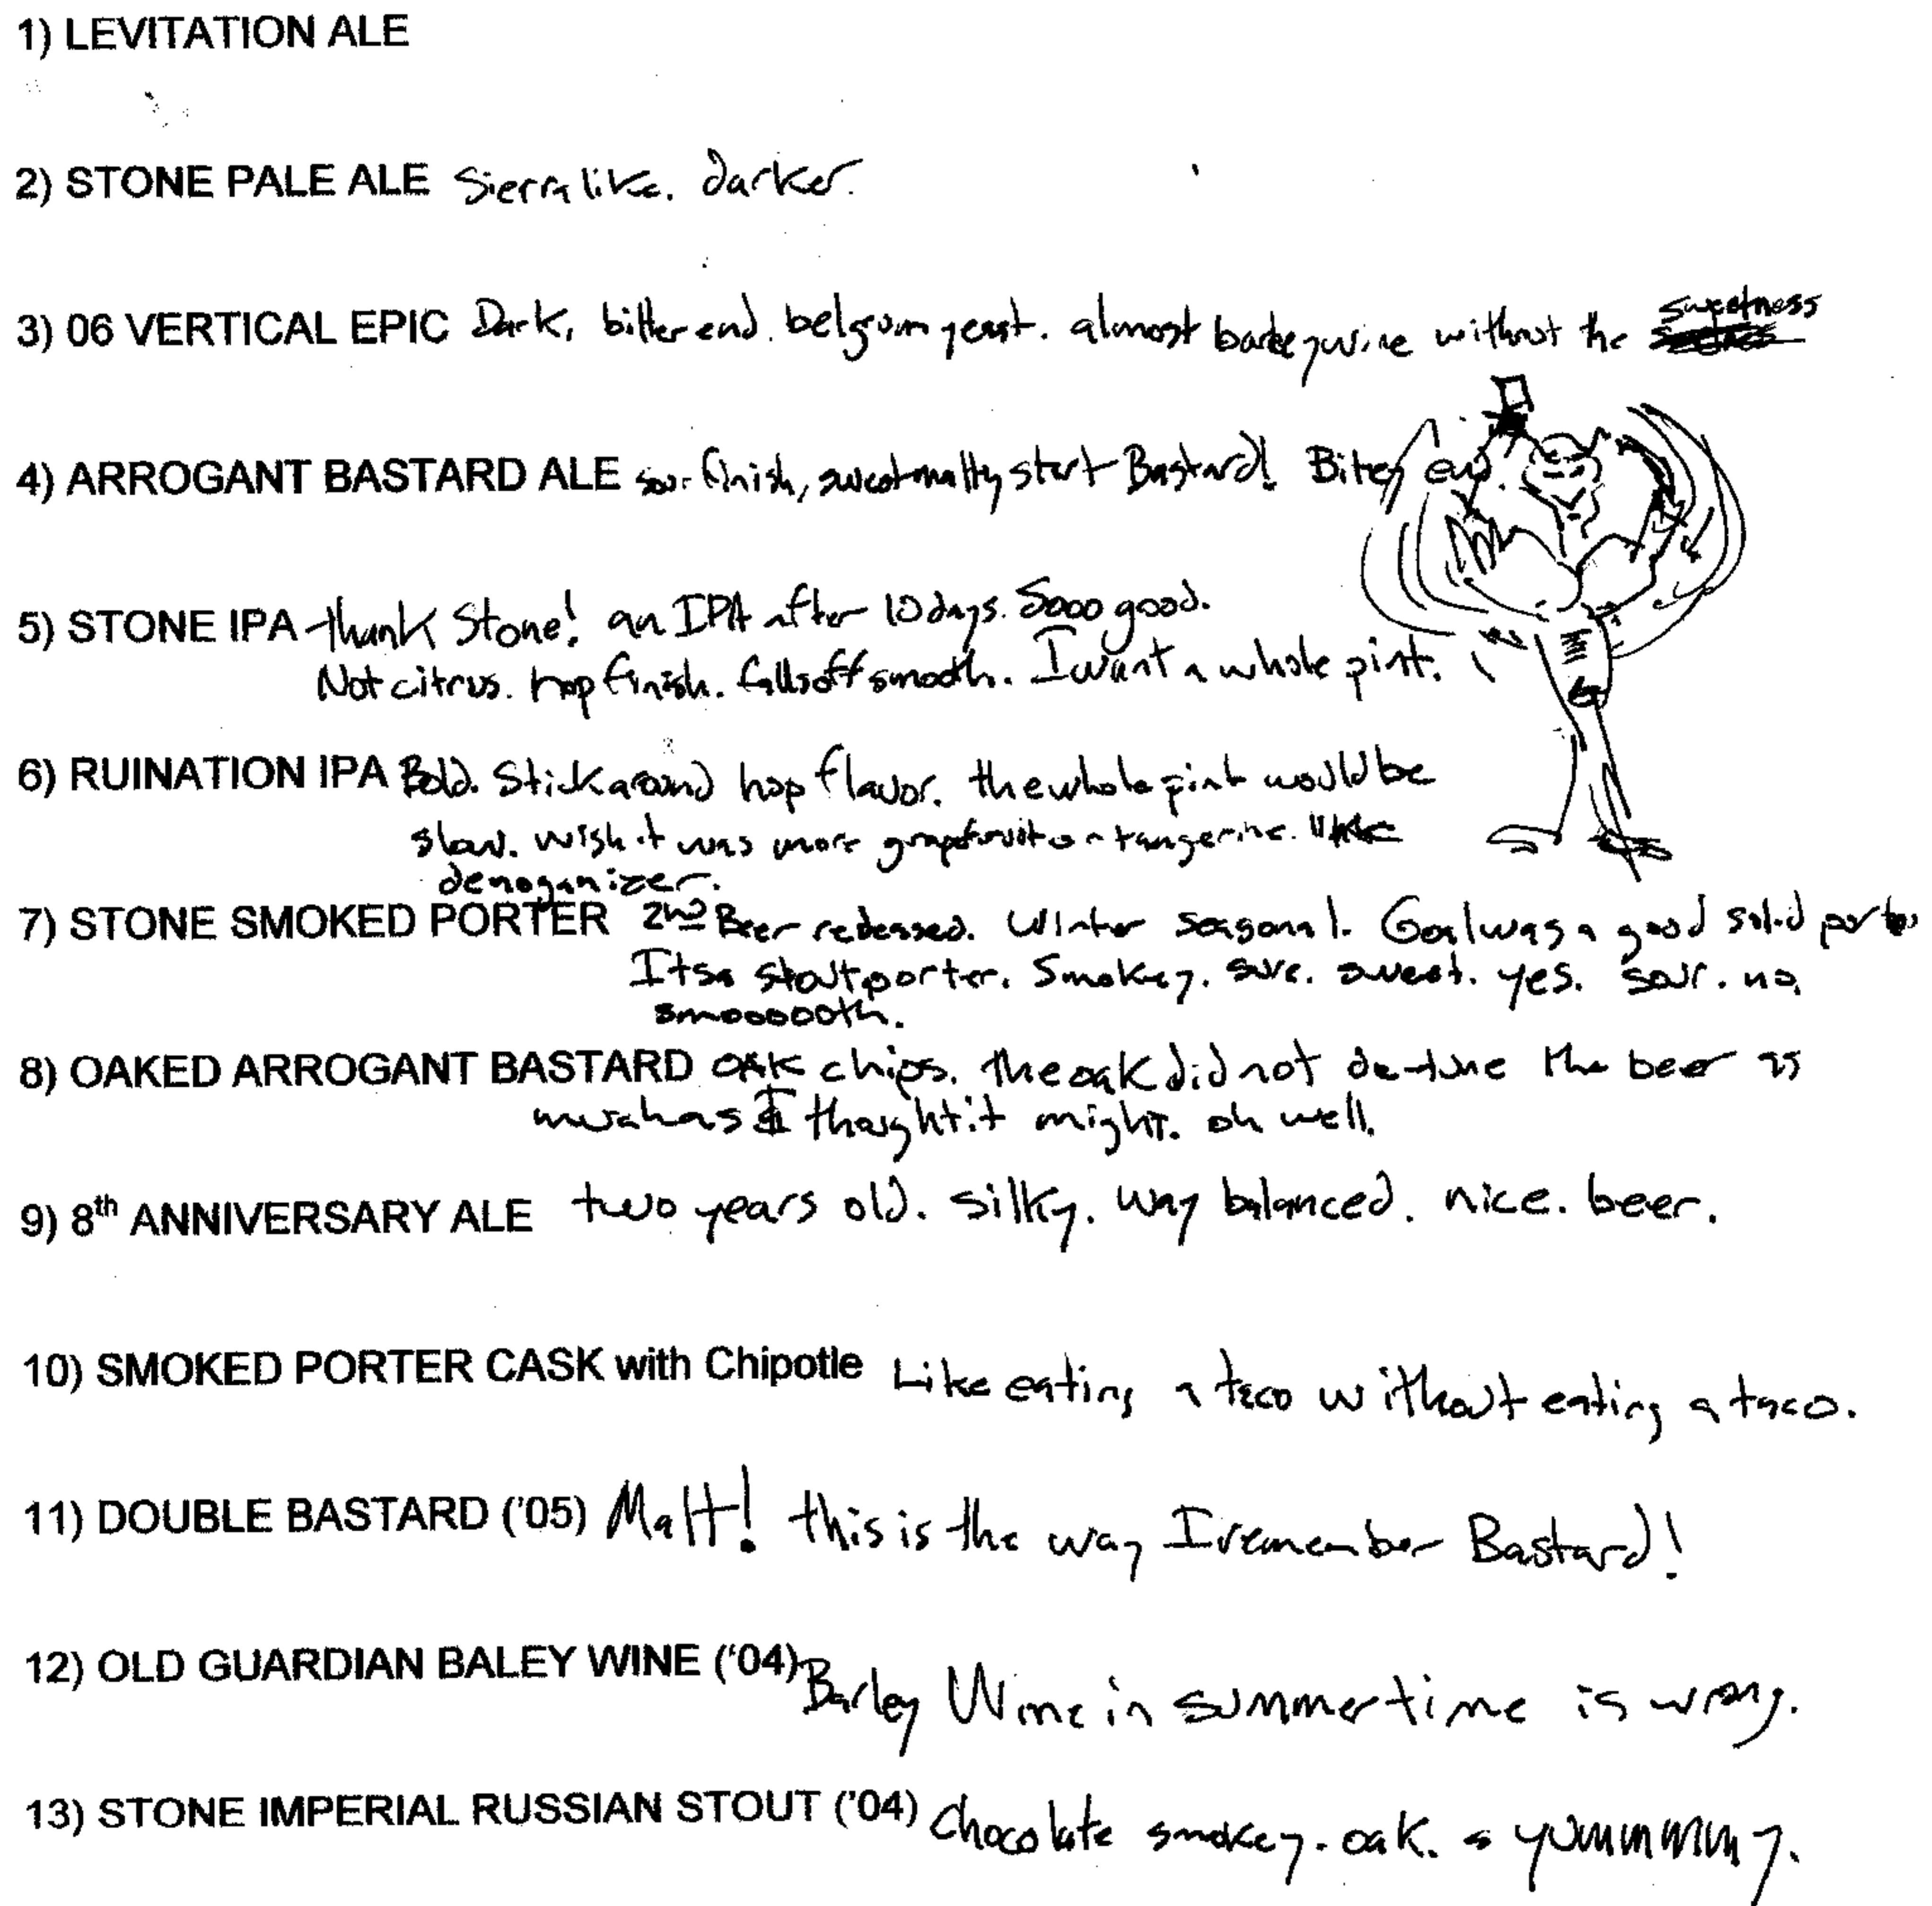 1) LEVITATION ALE
2) STONE PALE ALE Sierra like. darker.
3) 06 VERTICAL EPIC Dark, bitter end. belgium yeast. almost barleywine without the sweetness
4) ARROGANT BASTARD ALE sour finish, sweet malty start Bastard! Bitey end.
5) STONE IPA thank Stone! an IPA after 10 days. Sooo good.
Not citrus. hop finish. falls off smooth. I want a whole pint.
6) RUINATION IPA Bold. Stick around hop flavor. the whole pint would be
slow. wish it was more grapefruit or tangerine. like
denoganizer.
7) STONE SMOKED PORTER 2nd Beer released. Winter seasonal. Goal was a good solid porter
Itsa stout porter. Smokey. sure. sweet. yes. sour. no.
smooooooth.
8) OAKED ARROGANT BASTARD OAK chips. the oak did not de-tune the beer as
much as I thought it might. oh well.
9) 8th ANNIVERSARY ALE two years old. silky. way balanced. nice. beer.
10) SMOKED PORTER CASK with Chipotle Like eating a taco without eating a taco.
11) DOUBLE BASTARD ('05) Malt! this is the way I remember Bastard!
12) OLD GUARDIAN BALEY WINE ('04) Barley Wine in summertime is wrong.
13) STONE IMPERIAL RUSSIAN STOUT ('04) Chocolate smokey. oak. yummmmmy.